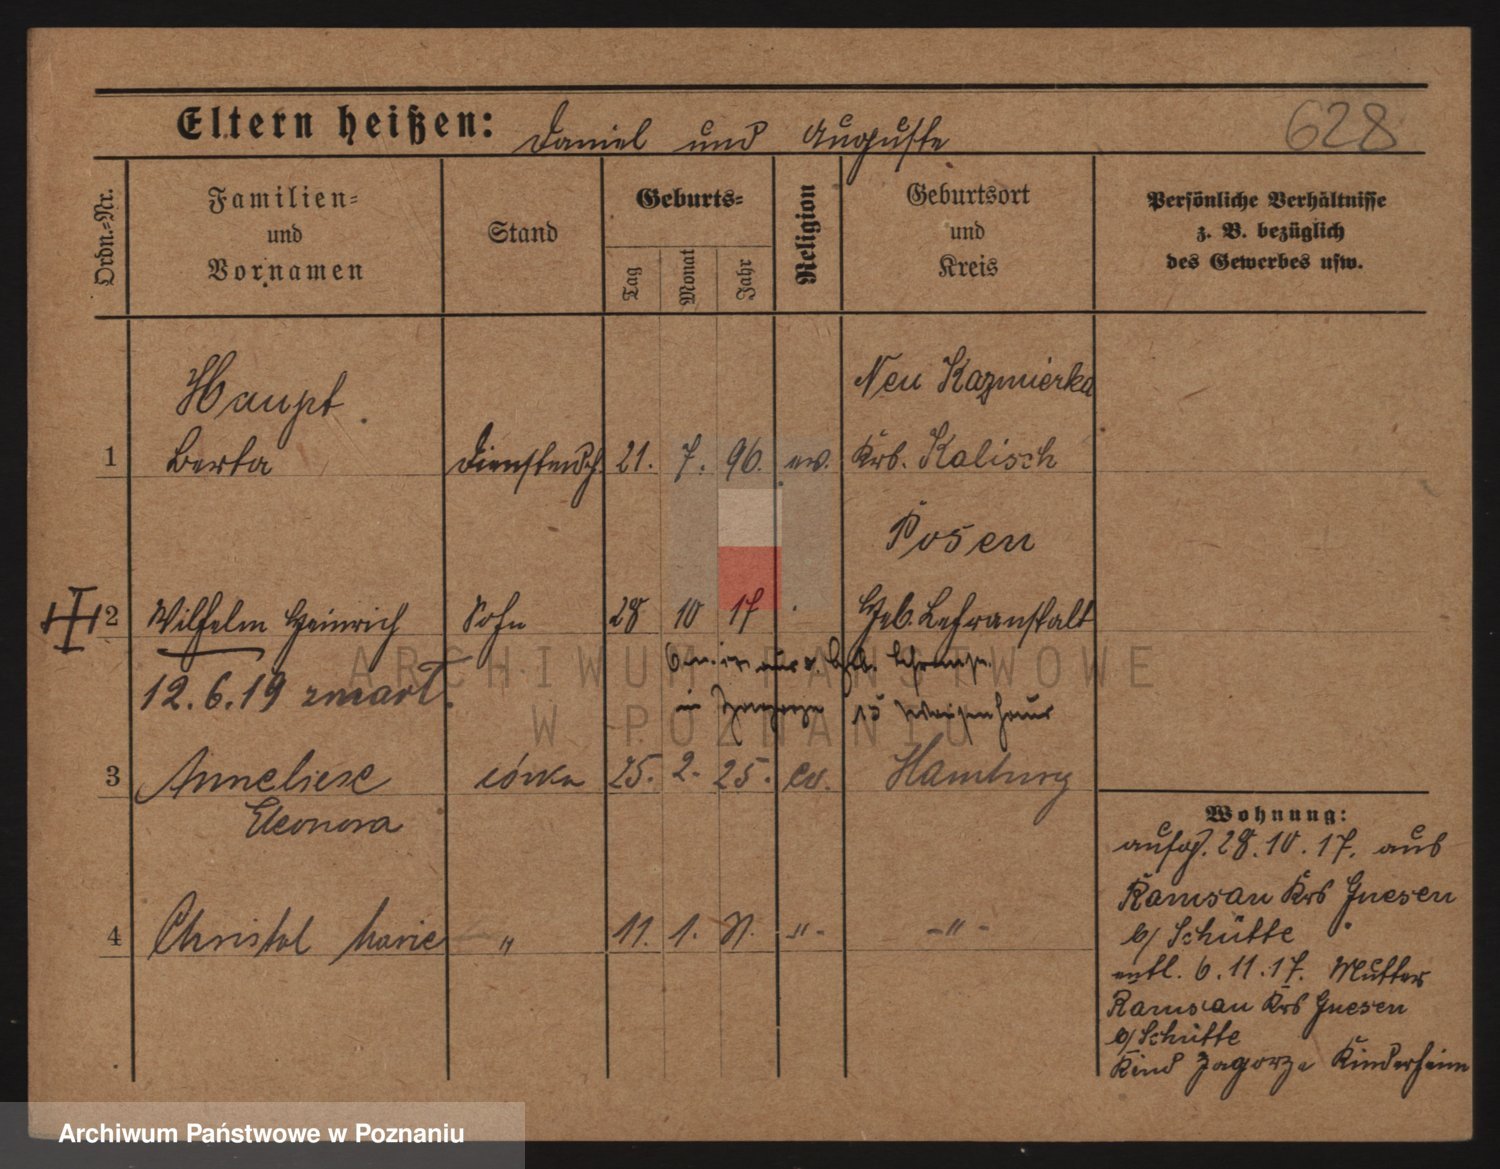 Eltern heißen: Daniel und Auguste
628
Ordn.=Nr.
Familien=
und
Vornamen
Stand
Geburts=
Tag
Monat
Jahr
Religion
Geburtsort
und
Kreis
Persönliche Verhältnisse
z. B. bezüglich
des Gewerbes usw.
Haupt
Neu Kazmierka
1 Berta 21. 7. 96. ev. Krs. Kalisch
Posen
2 Wilhelm Heinrich Sohn 28 10 17 Heb. Lehranstalt
12.6.19 zmarł.
3 Anneliese córka 25. 2. 25. ev. Hamburg
Eleonora
4 Christel Marie " 11. 1. -"- -"-
Wohnung:
aufg. 28.10.17. aus
Ramsau Krs Gnesen
b/ Schütte
entl. 6.11.17. Mutter
Ramsau Krs Gnesen
b/ Schütte
Kind Zagorze Kinderheim
ARCHIWUM PAŃSTWOWE
W POZNANIU
Archiwum Państwowe w Poznaniu